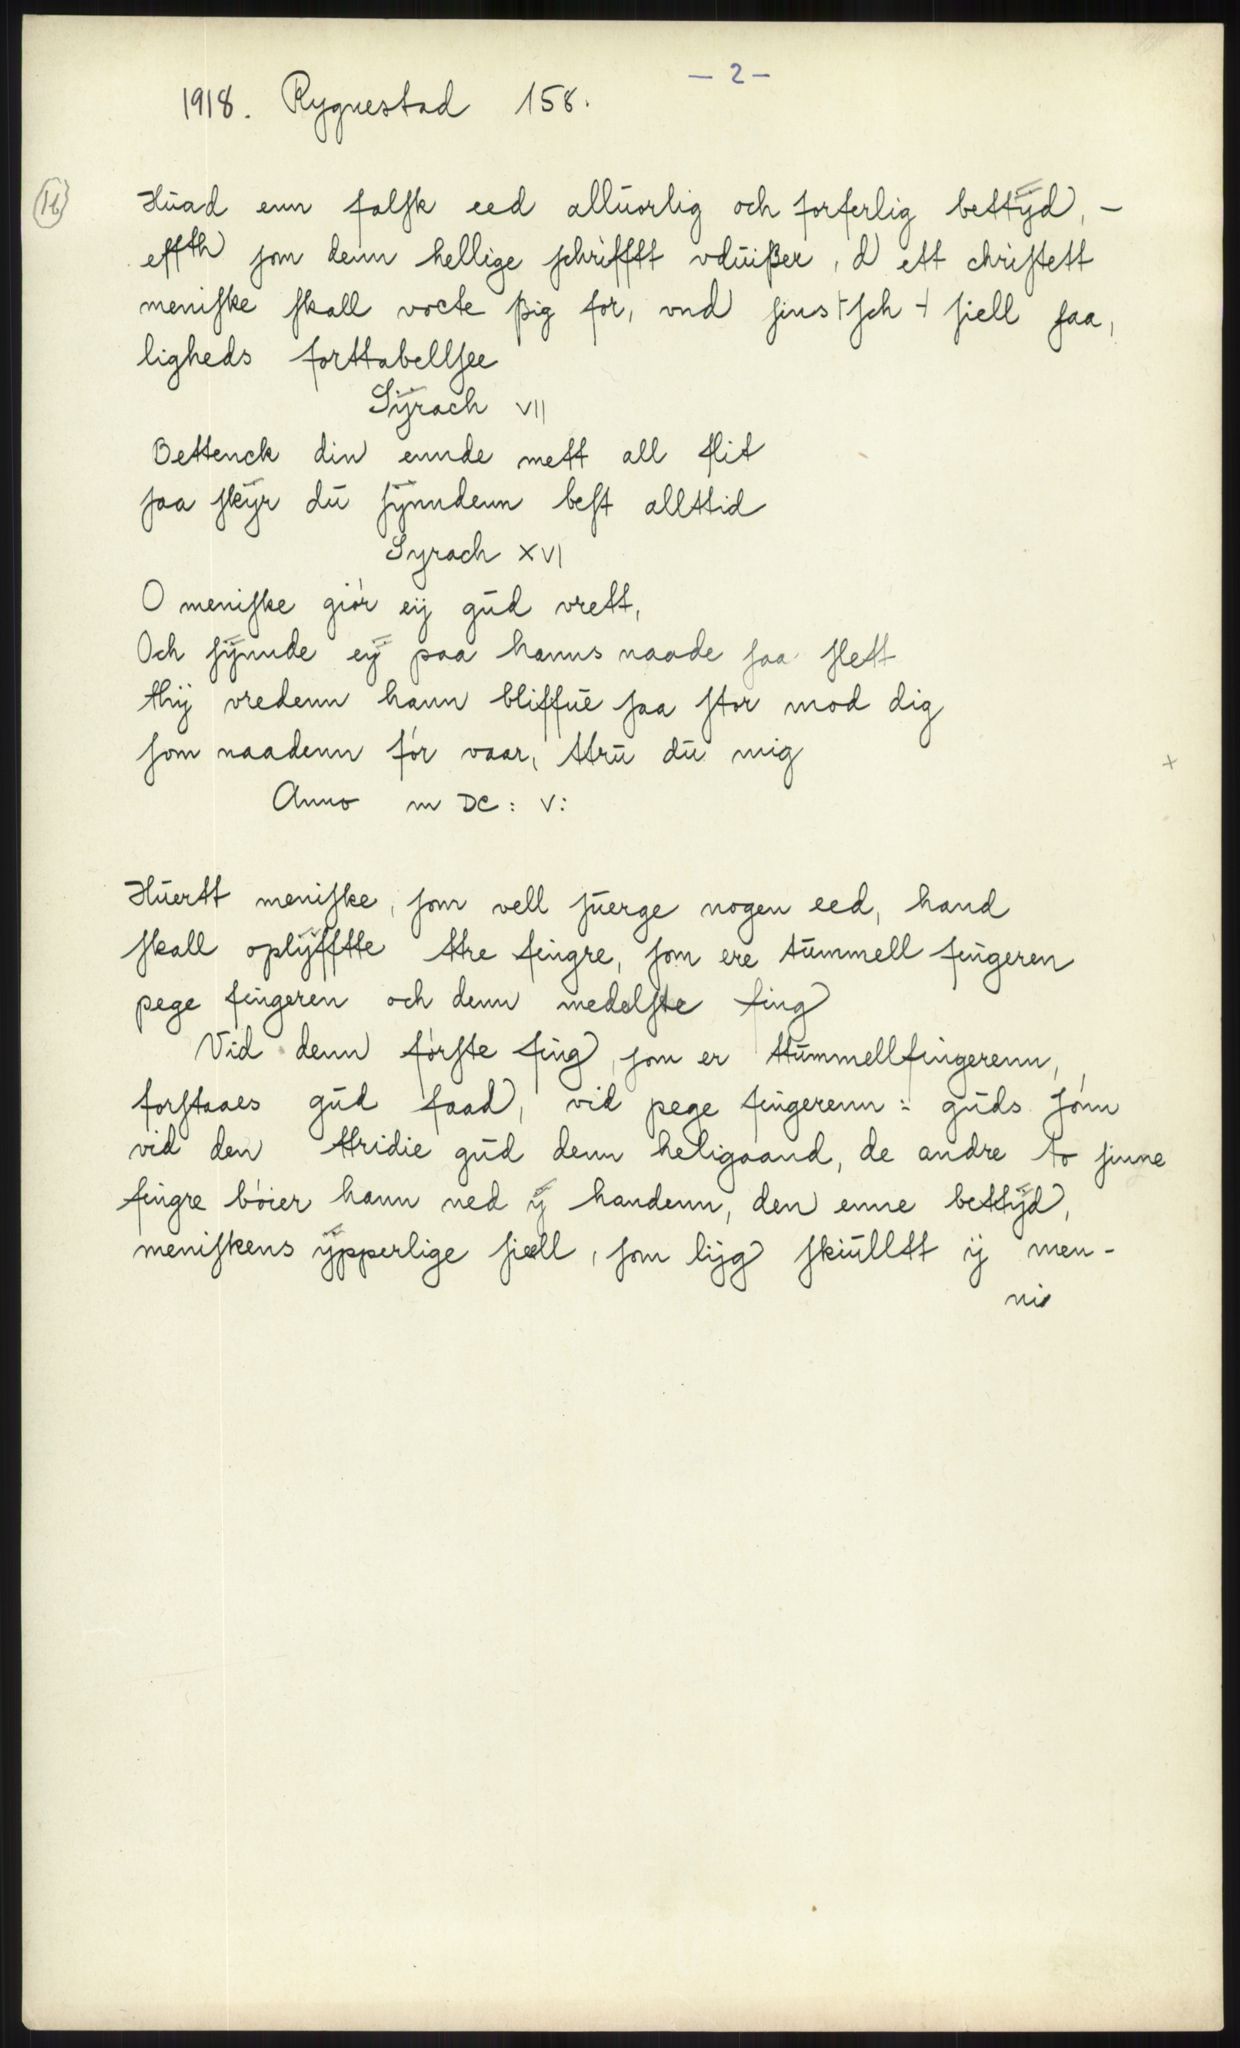 — 2 —
1918. Rygnestad 158.
16
Huad enn falsk eed alluorlig och forferlig bettÿd, –
effth som denn hellige schriffft vduißer, d ett christett
meniske skall vocte ßig for, vnd sins + sch + siell saa,
ligheds forttabellsee
Sÿrach VII
Bettenck din ennde mett all flit
saa skÿr du sÿnndenn best allttid
Syrach XVI
O meniske giór eÿ gud vrett,
Och sÿnnde eÿ paa hanns naade saa slett
thÿ vredenn hann bliffue saa stor mod dig
som naadenn fór vaar, ttru du mig
Anno m DC : V :
Huertt meniske, som vell suerge nogen eed, hand
skall oplÿfftte ttre fingre, som ere tummell fingeren
pege fingeren och denn medelste fing
Vid denn fórste fing, som er ttummellfingerenn,
forstaaes gud faad, vid pege fingerenn : guds sónn
vid den ttridie gud denn heligaand, de andre to sinne
fingre bóier hann ned ÿ handenn, den enne bettÿd,
meniskens ÿpperlige siell, som lÿg skiulltt ÿ men-
ni